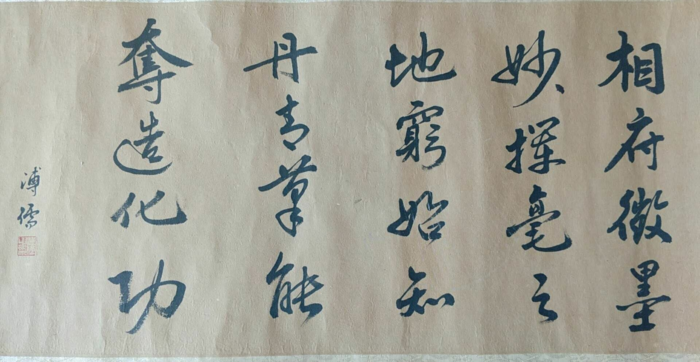 相府徵墨
妙揮毫之
地窮始知
丹青筆能
奪造化功
溥儒